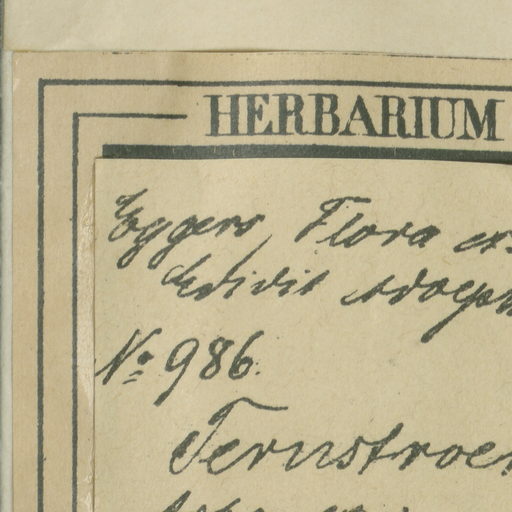 HERBARIUM
Eggers, Flora ex
Edidit Adolph
No. 986.
Ternstroe